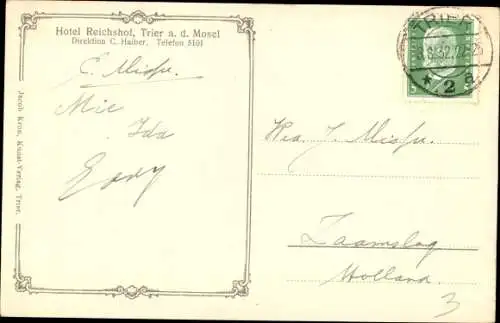 Hotel Reichshof, Trier a. d. Mosel
Direktion C. Haiber. Telefon 5101
C.
Mie
Ida
Jacob Kron, Kunst-Verlag, Trier.
TRIER
32.22-23
* 2 a
5
J.
Zaamslag
Holland.
3